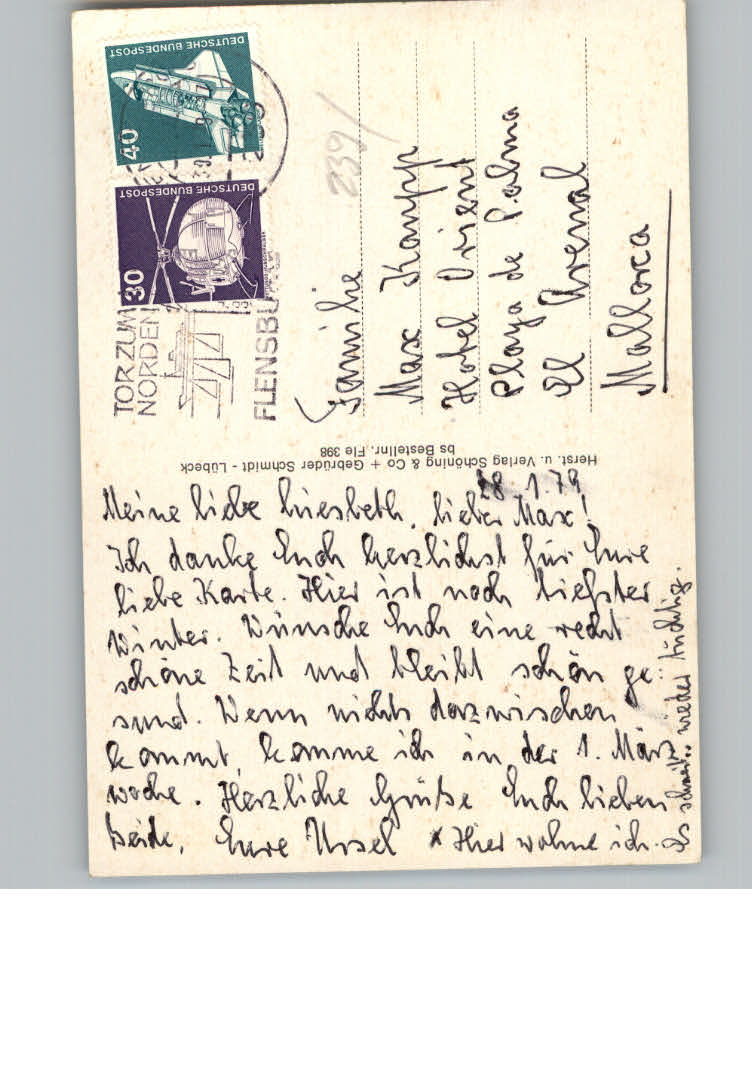 28.1.79
Meine liebe Liesbeth, lieber Max!
Ich danke Euch herzlichst für Eure
liebe Karte. Hier ist noch tiefster
Winter. Wünsche Euch eine recht
schöne Zeit und bleibt schön ge-
sund. Wenn nichts dazwischen
kommt, komme ich in der 1. März
woche. Herzliche Grüße Euch lieben
beide, Eure Ursel x Hier wohne ich.
Es schneit wieder tüchtig.
Herst. u. Verlag Schöning & Co + Gebrüder Schmidt - Lübeck
bs Bestellnr. Fle 398
Familie
Max Kampp
Hotel Orient
Playa de Palma
El Arenal
Mallorca
239/
DEUTSCHE BUNDESPOST
40
DEUTSCHE BUNDESPOST
30
TOR ZUM
NORDEN
FLENSBU